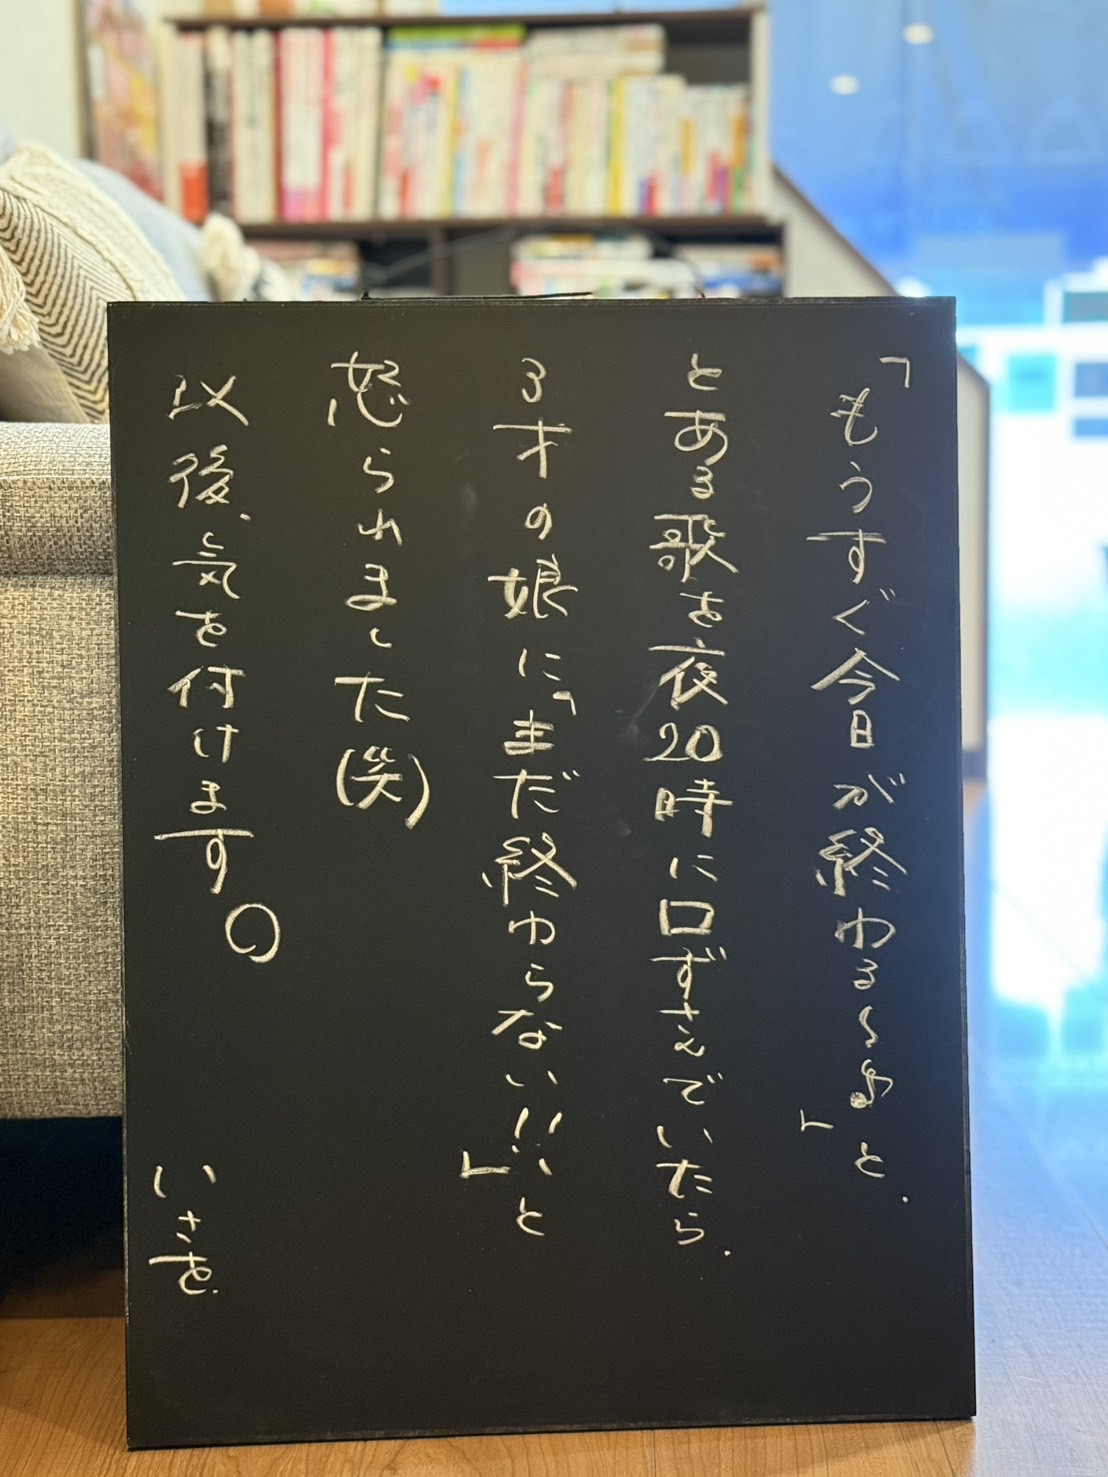 「もうすぐ今日が終わる〜♪」と、
とある歌を夜20時に口ずさんでいたら、
3才の娘に「まだ終わらない!!」と
怒られました(笑)
以後、気を付けます。
いさを